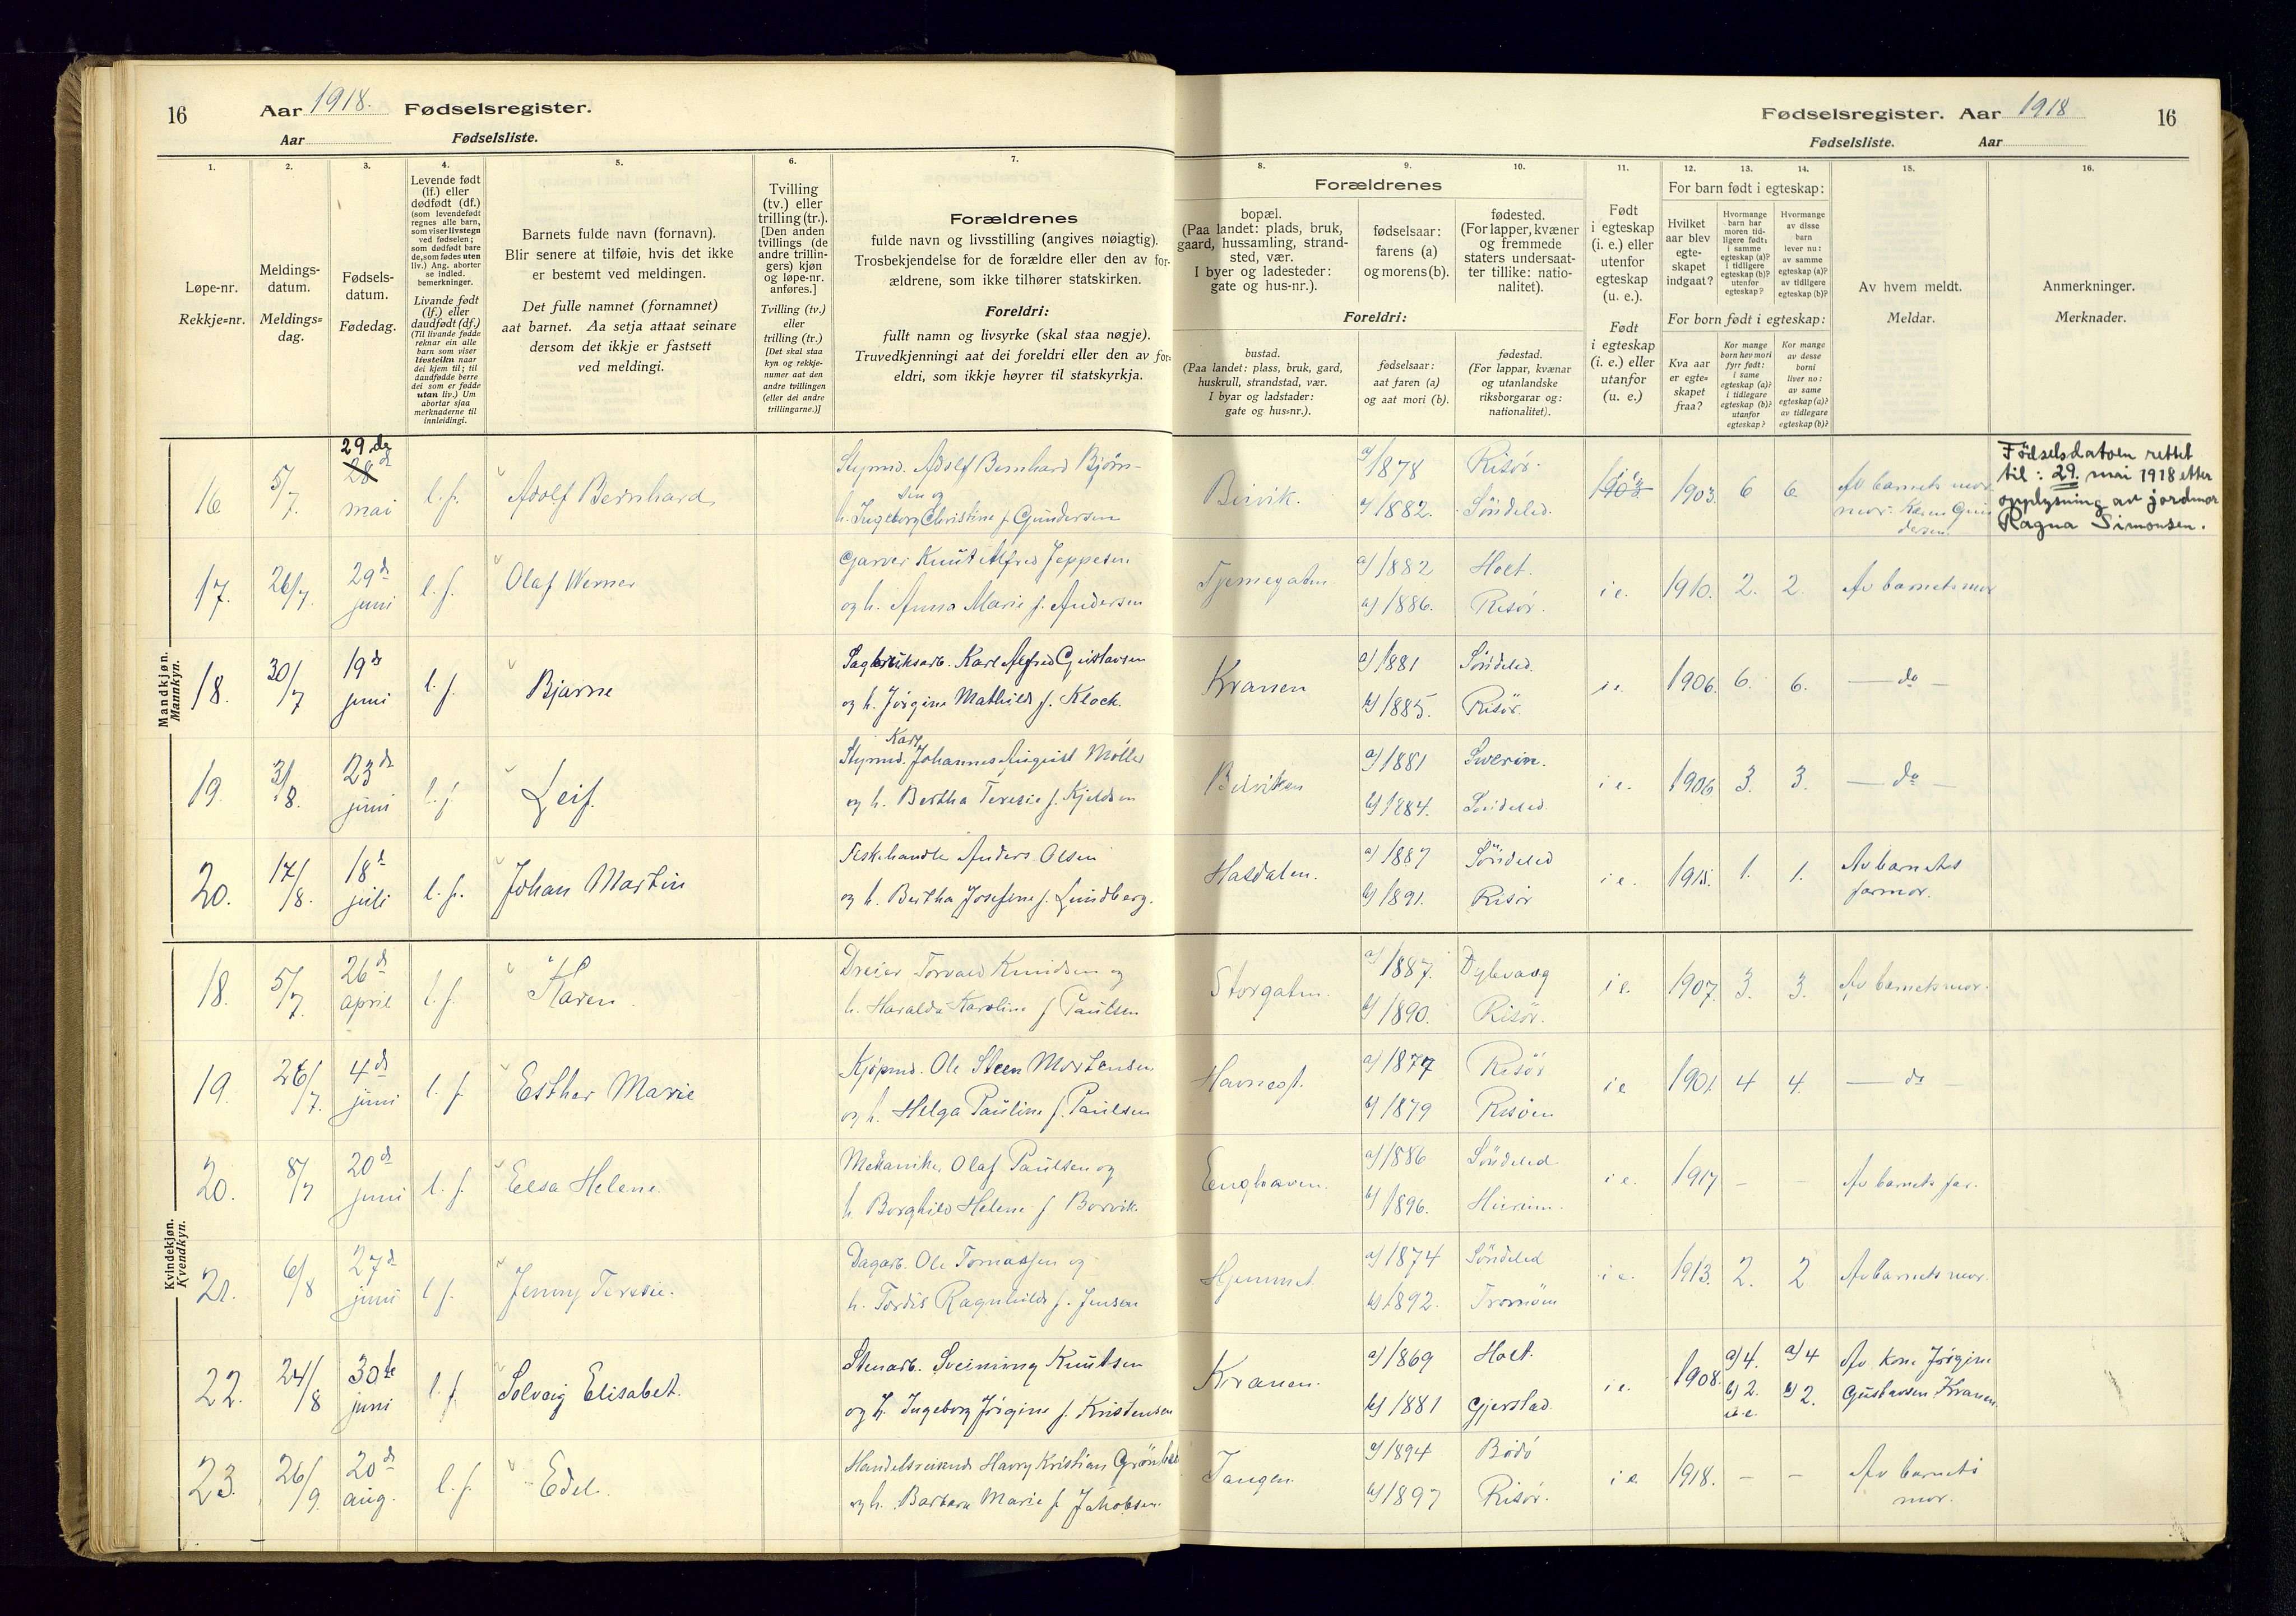 16
Aar 1918. Fødselsregister.
Aar Fødselsliste.
Fødselsregister. Aar 1918
Fødselsliste. Aar
16
1.
Løpe-nr.
Rekkje=nr.
2.
Meldings-
datum.
Meldings=
dag.
3.
Fødsels-
datum.
Fødedag.
4.
Levende født
(lf.) eller
dødfødt (df.)
(som levendefødt
regnes alle barn,
som viser livstegn
ved fødselen;
som dødfødt bare
de, som fødes uten
liv.) Ang. aborter
se indled.
bemerkninger.
Livande født
(lf.) eller
daudfødt (df.)
(Til livande fødde
reknar ein alle
barn som viser
livsteikn naar
dei kjem til; til
daudfødde berre
dei som er fødde
utan liv.) Um
abortar sjaa
merknaderne til
innleidingi.
5.
Barnets fulde navn (fornavn).
Blir senere at tilføie, hvis det ikke
er bestemt ved meldingen.
Det fulle namnet (fornamnet)
aat barnet. Aa setja attaat seinare
dersom det ikkje er fastsett
ved meldingi.
6.
Tvilling
(tv.) eller
trilling (tr.).
[Den anden
tvillings (de
andre trillin-
gers) kjøn
og løpe-nr.
anføres.]
Tvilling (tv.)
eller
trilling (tr.)
[Det skal staa
kyn og rekkje-
numer aat den
andre tvillingen
(eller dei andre
trillingarne.)]
7.
Forældrenes
fulde navn og livsstilling (angives nøiagtig).
Trosbekjendelse for de forældre eller den av for-
ældrene, som ikke tilhører statskirken.
Foreldri:
fullt namn og livsyrke (skal staa nøgje).
Truvedkjenningi aat dei foreldri eller den av for=
eldri, som ikkje høyrer til statskyrkja.
Forældrenes
8.
bopæl.
(Paa landet: plads, bruk,
gaard, hussamling, strand-
sted, vær.
I byer og ladesteder:
gate og hus-nr.).
9.
fødselsaar:
farens (a)
og morens (b).
10.
fødested.
(For lapper, kvæner
og fremmede
staters undersaat-
ter tillike: natio-
nalitet).
Foreldri:
bustad.
(Paa landet: plass, bruk, gard,
huskrull, strandstad, vær.
I byar og ladstader:
gate og hus=nr.).
fødselsaar:
aat faren (a)
og aat mori (b).
fødestad.
(For lappar, kvænar
og utanlandske
riksborgarar og:
nationalitet).
11.
Født
i egteskap
(i. e.) eller
utenfor
egteskap
(u. e.).
Født
i egteskap
(i. e.) eller
utanfor
(u. e.)
For barn født i egteskap:
12.
Hvilket
aar blev
egte-
skapet
indgaat?
13.
Hvormange
barn har
moren tid-
ligere født:
i samme
egteskap (a)?
i tidligere
egteskap (b)?
utenfor
egteskap?
14.
Hvormange
av disse
barn
lever nu:
av samme
egteskap (a)?
av tidligere
egteskap (b)?
For born født i egteskap:
Kva aar
er egte=
skapet
fraa?
Kor mange
born hev mori
fyrr født:
i same
egteskap (a)?
i tidlegare
egteskap (b)?
utanfor
egteskap?
Kor mange
av desse
borni
liver no:
av same
egteskap (a)?
av tidlegare
egteskap (b)?
15.
Av hvem meldt.
Meldar.
16.
Anmerkninger.
Merknader.
Mandkjøn.
Mannkyn.
16 5/7. 29.de 28de mai l. f. Adolf Bernhard Styrmd. Adolf Bernhard Bjørn-
sen og
h. Ingeborg Christine f. Gundersen
Buvik. a/1878 b/1882. Risør. Søndeled. i e. 1903. 6 6 Av barnets mor
mor. Karen Gun
dersen.
Födselsdatoen rettet
til: 29. mai 1918 etter
opplysning av jordmor
Ragna Simonsen.
17. 26/7. 29de juni l. f. Olaf Werner Garver Knut Alfred Jeppesen
og h. Anna Marie f. Andersen
Tjennegaten a/1882 b/1886. Holt. Risør. i e. 1910. 2. 2. Av barnets mor
18. 30/7 19de juni l. f. Bjarne Sagbruksarb. Karl Alfred Gustavsen
og h. Jørgine Mathilde f. Klock.
Kranen a/1881 b/1885. Søndeled. Risør. i e. 1906. 6. 6. — do —
19. 3/8. 23de juni l. f. Leif. Karl
Styrmd. Johannes August Møller
og h. Bertha Teresie f. Kjeldsen
Buviken a/1881 b/1884. Swerin. Søndeled i e. 1906 3. 3. — do —
20. 17/8. 18de juli l. f. Johan Martin Fiskehandler Anders Olsen
og h. Bertha Josefine f. Lundberg.
Hasdalen. a/1887 b/1891. Søndeled Risør i e. 1915. 1. 1. Av barnets
farmor.
Kvindekjøn.
Kvendkyn.
18. 5/7. 26de april l. f. Karen. Dreier Torvald Knudsen og
h. Haralda Karoline f Paulsen
Storgaten. a/1887. b/1890. Dybvaag Risør. i e. 1907. 3. 3. Av barnets mor.
19. 26/7. 4de juni l. f. Esther Marie Kjøpmd. Ole Steen Mortensen
og h. Helga Pauline f. Paulsen
Havnegt. a/1877 b/1879 Risør Risøen i e 1901. 4 4. — do —
20. 8/7 20de juni l. f. Elsa Helene. Mekaniker Olaf Paulsen og
h. Borghild Helene f Borvik
Enghaven. a/1886 b/1896. Søndeled i e. 1917 — — Av barnets far.
21. 6/8 27de juni l f. Jenny Teresie. Dagarb. Ole Tomassen og
h. Tordis Ragnhild f. Jensen
Hjemmet a/1874 b/1892. Søndeled Tromøen i e. 1913. 2. 2 Av barnets mor.
22. 24/8 30te juni l. f. Solveig Elisabet. Stenarb. Sveinung Knutsen
og h. Ingeborg Jørgine f. Kristensen
Kranen. a/1869 b/1881 Holt. Gjerstad. i e. 1908. a/4. b/2. u. e. a/4 b/2. Av Kone Jørgine
Gustavsen Kranen.
23. 26/9. 20de aug. l. f. Edel. Handelsreisende Harry Kristian
og h. Barbara Marie f. Jakobsen.
Tangen. a/1894 b/1897 Bodø Risør. i e 1918. — — Av barnets
mor.